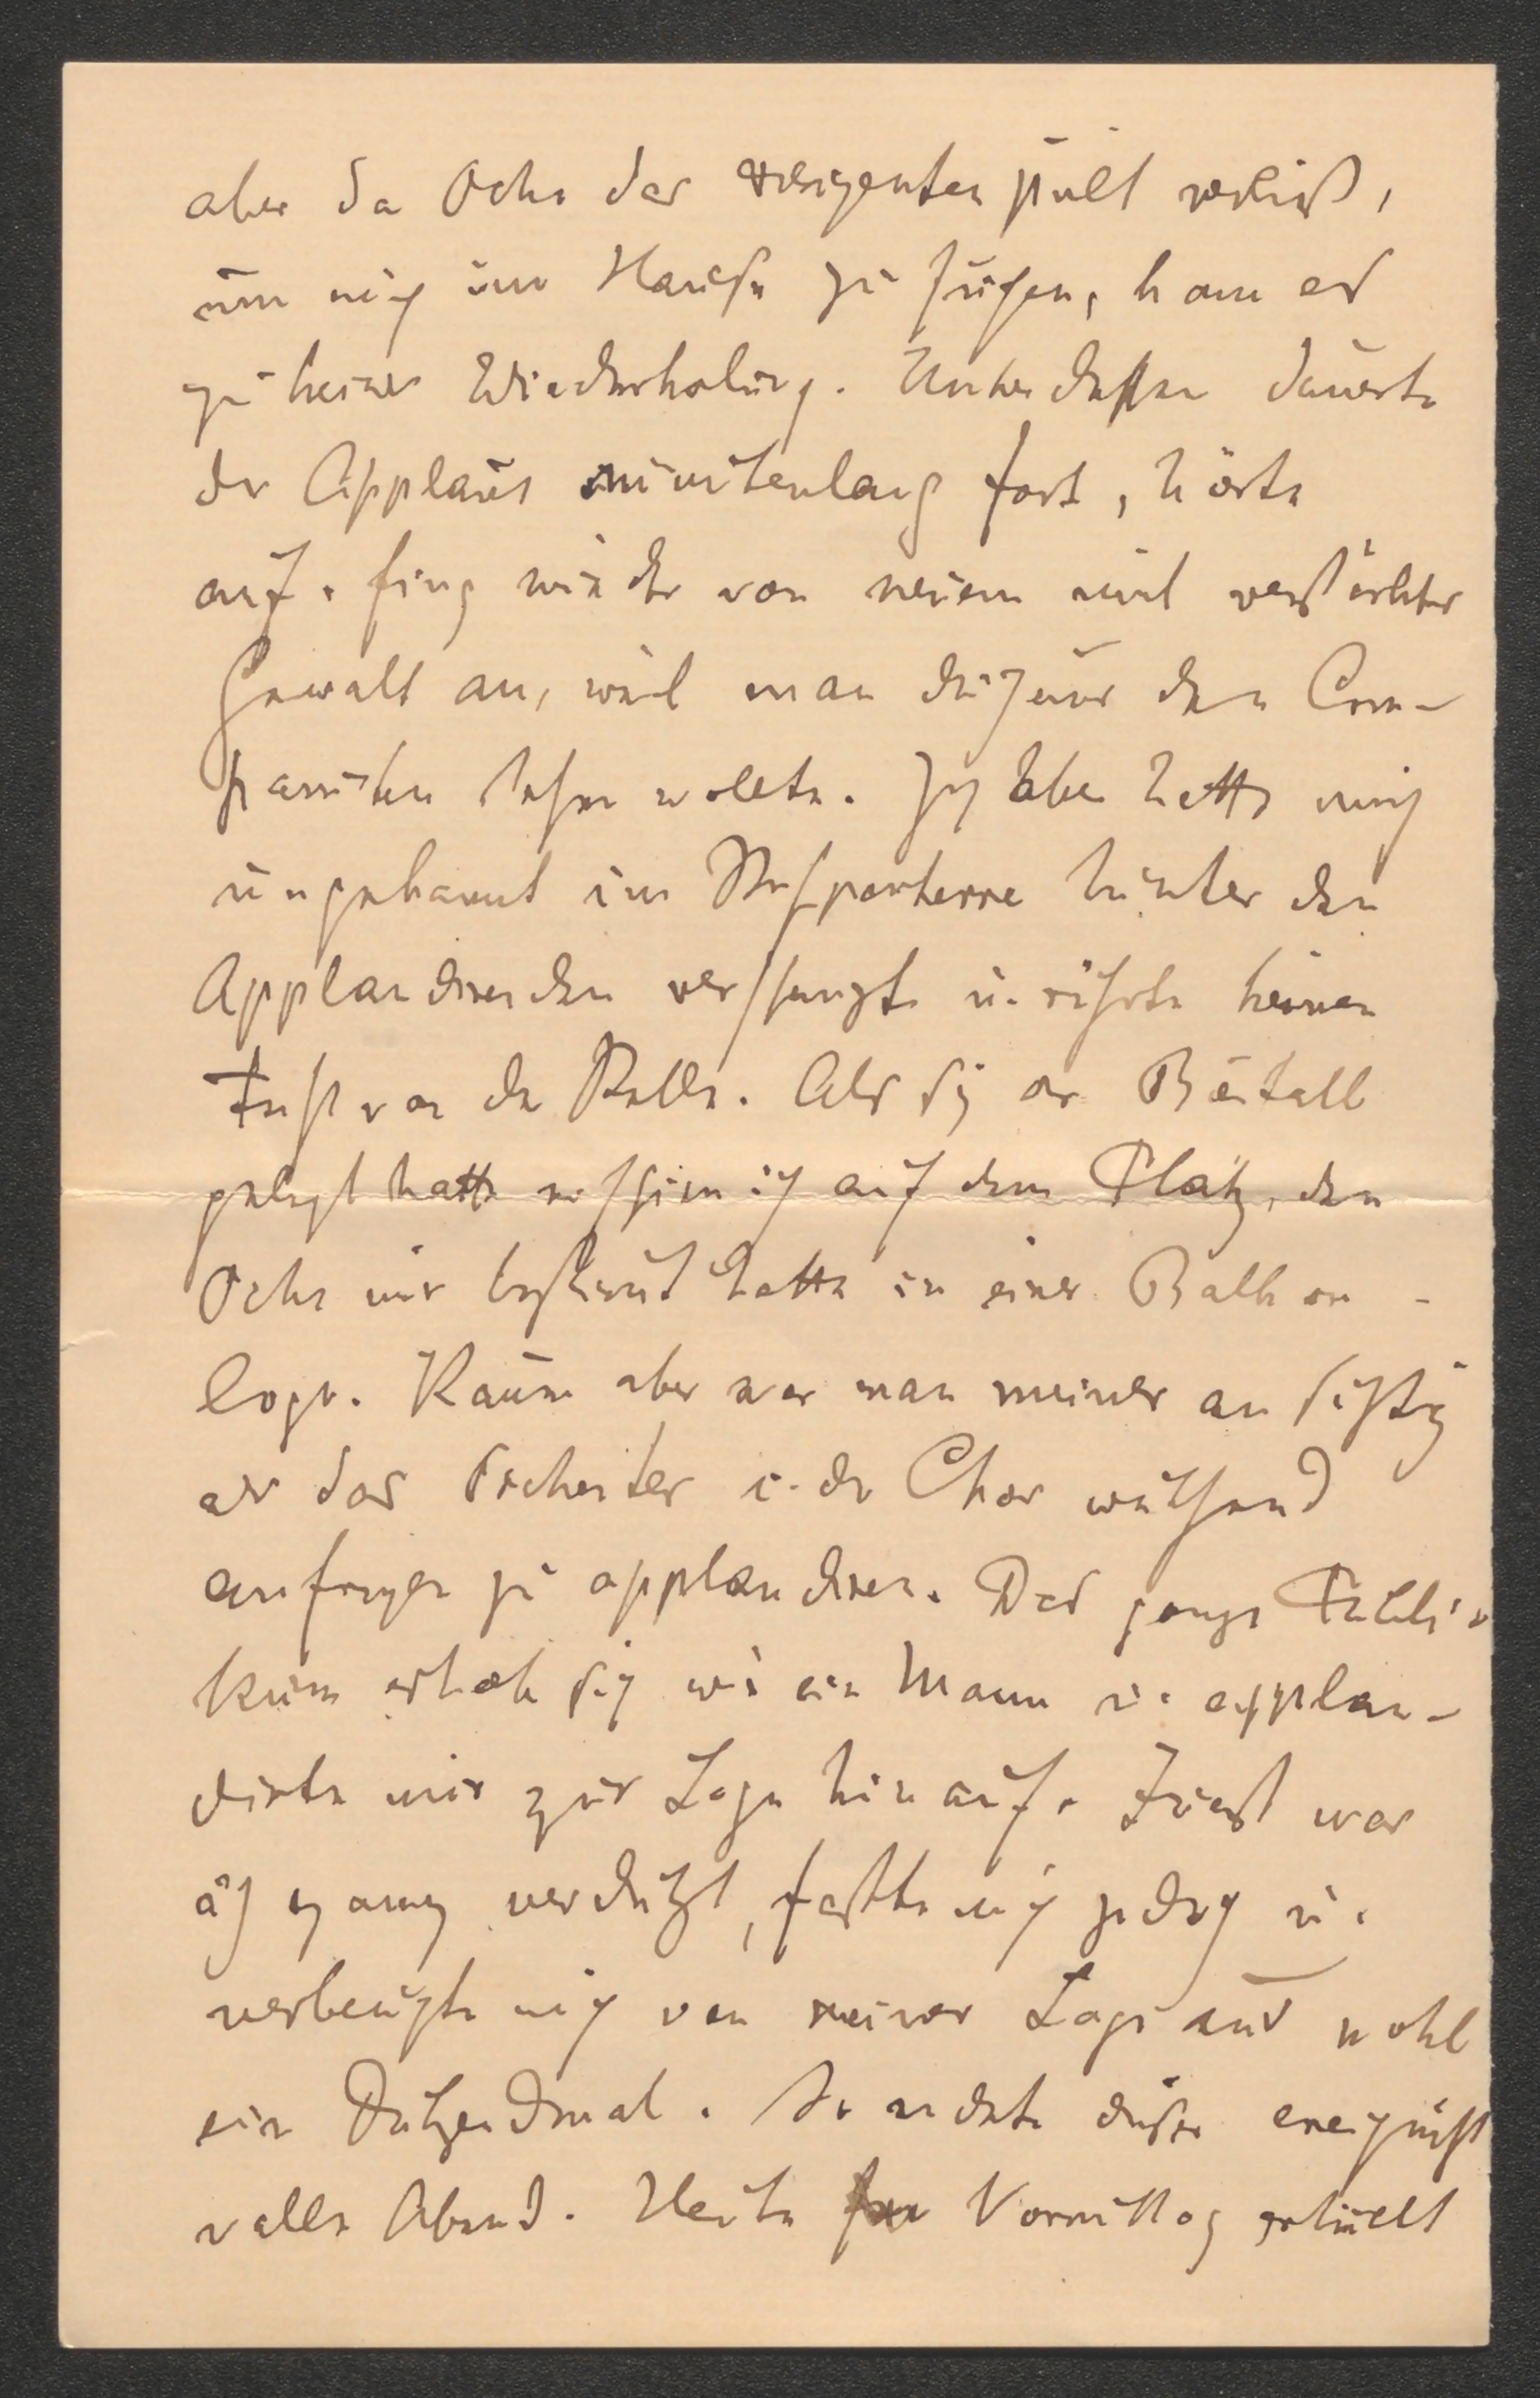 aber da Ochs das Dirigentenpult verließ,
um mich im Hause zu suchen, kam es
zu keiner Wiederholung. Unterdessen dauerte
der Applaus minutenlang fort, hörte
auf u. fing wieder von neuem mit verstärkter
Gewalt an, weil man durchaus den Com-
ponisten sehen wollte. Ich aber hatte mich
ungekannt im Stehparterre hinter den
Applaudirenden verschanzt u. rührte keinen
Fuß von der Stelle. Als sich der Beifall
gelegt hatte erschien ich auf dem Platz, den
Ochs mir bestimmt hatte in einer Balkon-
loge. Kaum aber war man meiner ansichtig
als das Orchester u. der Chor wüthend
anfingen zu applaudiren. Das ganze Publi-
kum erhob sich wie ein Mann u. applau-
dirte mir zur Loge hinauf. Zuerst war
ich ganz verdutzt, faßte mich jedoch u.
verbeugte mich von meiner Loge aus wohl
ein Dutzendmal. So endete dieser ereigniß
volle Abend. Heute Vormittag erhielt